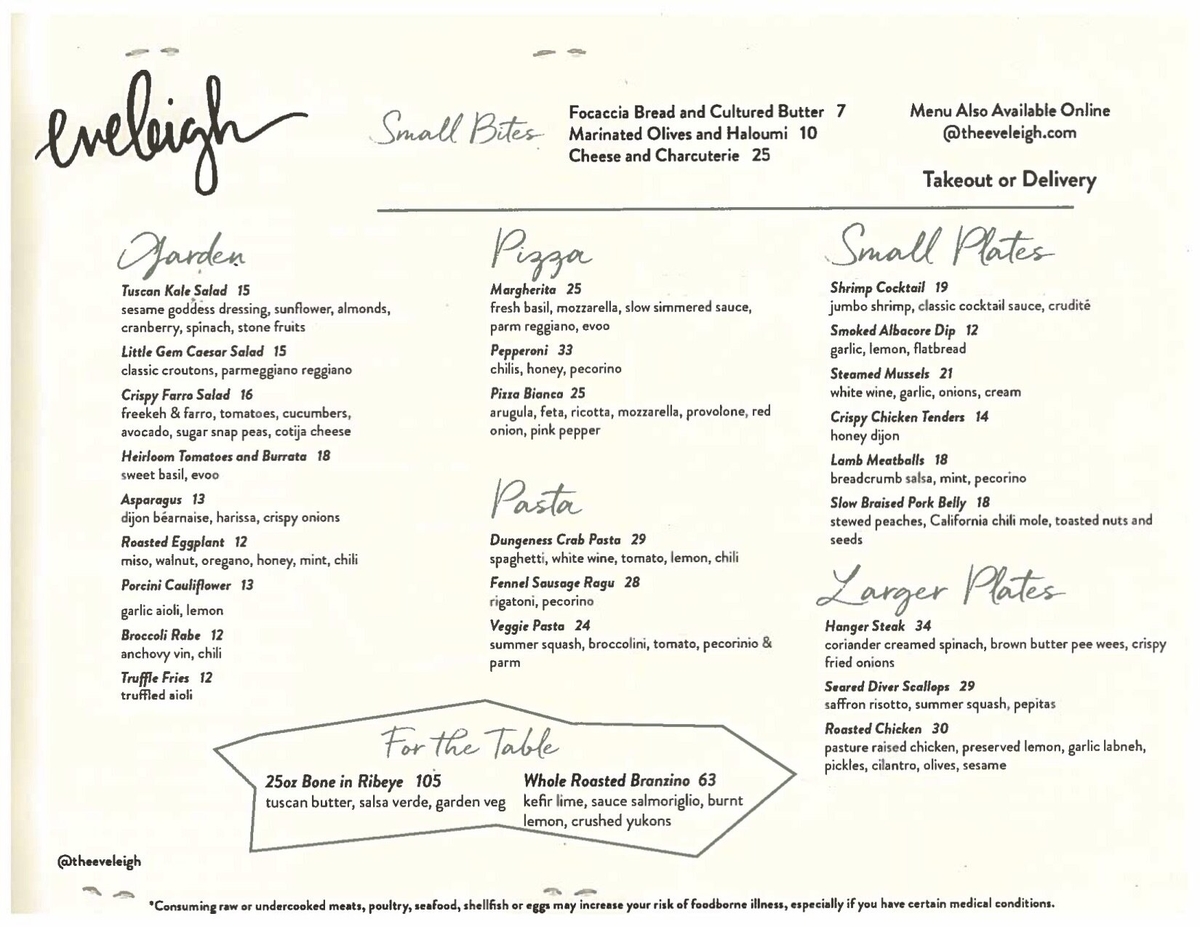 eveleigh
Small Bites
Focaccia Bread and Cultured Butter 7
Marinated Olives and Haloumi 10
Cheese and Charcuterie 25
Menu Also Available Online
@theeveleigh.com
Takeout or Delivery
Garden
Tuscan Kale Salad 15
sesame goddess dressing, sunflower, almonds,
cranberry, spinach, stone fruits
Little Gem Caesar Salad 15
classic croutons, parmeggiano reggiano
Crispy Farro Salad 16
freekeh & farro, tomatoes, cucumbers,
avocado, sugar snap peas, cotija cheese
Heirloom Tomatoes and Burrata 18
sweet basil, evoo
Asparagus 13
dijon béarnaise, harissa, crispy onions
Roasted Eggplant 12
miso, walnut, oregano, honey, mint, chili
Porcini Cauliflower 13
garlic aioli, lemon
Broccoli Rabe 12
anchovy vin, chili
Truffle Fries 12
truffled aioli
Pizza
Margherita 25
fresh basil, mozzarella, slow simmered sauce,
parm reggiano, evoo
Pepperoni 33
chilis, honey, pecorino
Pizza Bianca 25
arugula, feta, ricotta, mozzarella, provolone, red
onion, pink pepper
Pasta
Dungeness Crab Pasta 29
spaghetti, white wine, tomato, lemon, chili
Fennel Sausage Ragu 28
rigatoni, pecorino
Veggie Pasta 24
summer squash, broccolini, tomato, pecorinio &
parm
Small Plates
Shrimp Cocktail 19
jumbo shrimp, classic cocktail sauce, crudité
Smoked Albacore Dip 12
garlic, lemon, flatbread
Steamed Mussels 21
white wine, garlic, onions, cream
Crispy Chicken Tenders 14
honey dijon
Lamb Meatballs 18
breadcrumb salsa, mint, pecorino
Slow Braised Pork Belly 18
stewed peaches, California chili mole, toasted nuts and
seeds
Larger Plates
Hanger Steak 34
coriander creamed spinach, brown butter pee wees, crispy
fried onions
Seared Diver Scallops 29
saffron risotto, summer squash, pepitas
Roasted Chicken 30
pasture raised chicken, preserved lemon, garlic labneh,
pickles, cilantro, olives, sesame
For the Table
25oz Bone in Ribeye 105
tuscan butter, salsa verde, garden veg
Whole Roasted Branzino 63
kefir lime, sauce salmoriglio, burnt
lemon, crushed yukons
@theeveleigh
*Consuming raw or undercooked meats, poultry, seafood, shellfish or eggs may increase your risk of foodborne illness, especially if you have certain medical conditions.